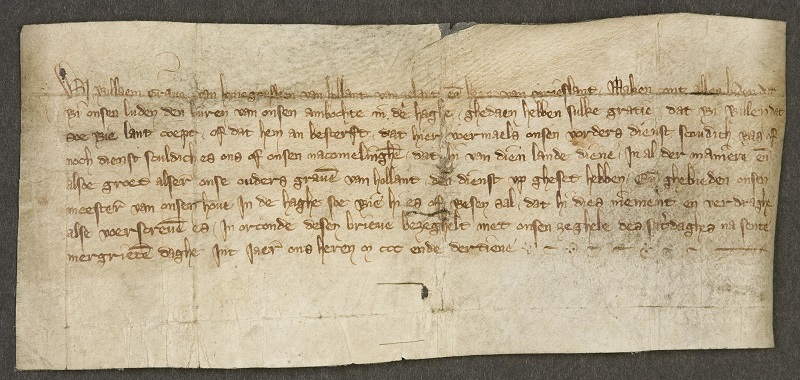 Wi Willem Grave van henegouwen van hollant van zelant en̄ here van vrieslant Maken cont allen luden dat
Wi onsen luden den buren van onsen ambochte in der haghe ghedaen hebben sulke gratie dat Wi Willen dat
soe Wie lant coept of dat hem an besterft dat hier voermaels onsen vorders dienst sculdich Was of
noch dienst sculdich es ons of onsen nacomelinghē dat hi van dien lande diene in al der maniere en̄
alsoe groet alser onse ouders gravē van hollant den dienst up gheset hebben En̄ ghebieden onsen
meester van onsen hove in de haghe soe Wie hi es of Wesen sal dat hi dies niement en verdraghe
alse voerscrevē es in orconde desen brieve bezeghelt met onsen zeghele des daghes na sente
mergrietē daghe int iaer ons heren m ccc ende dertiene